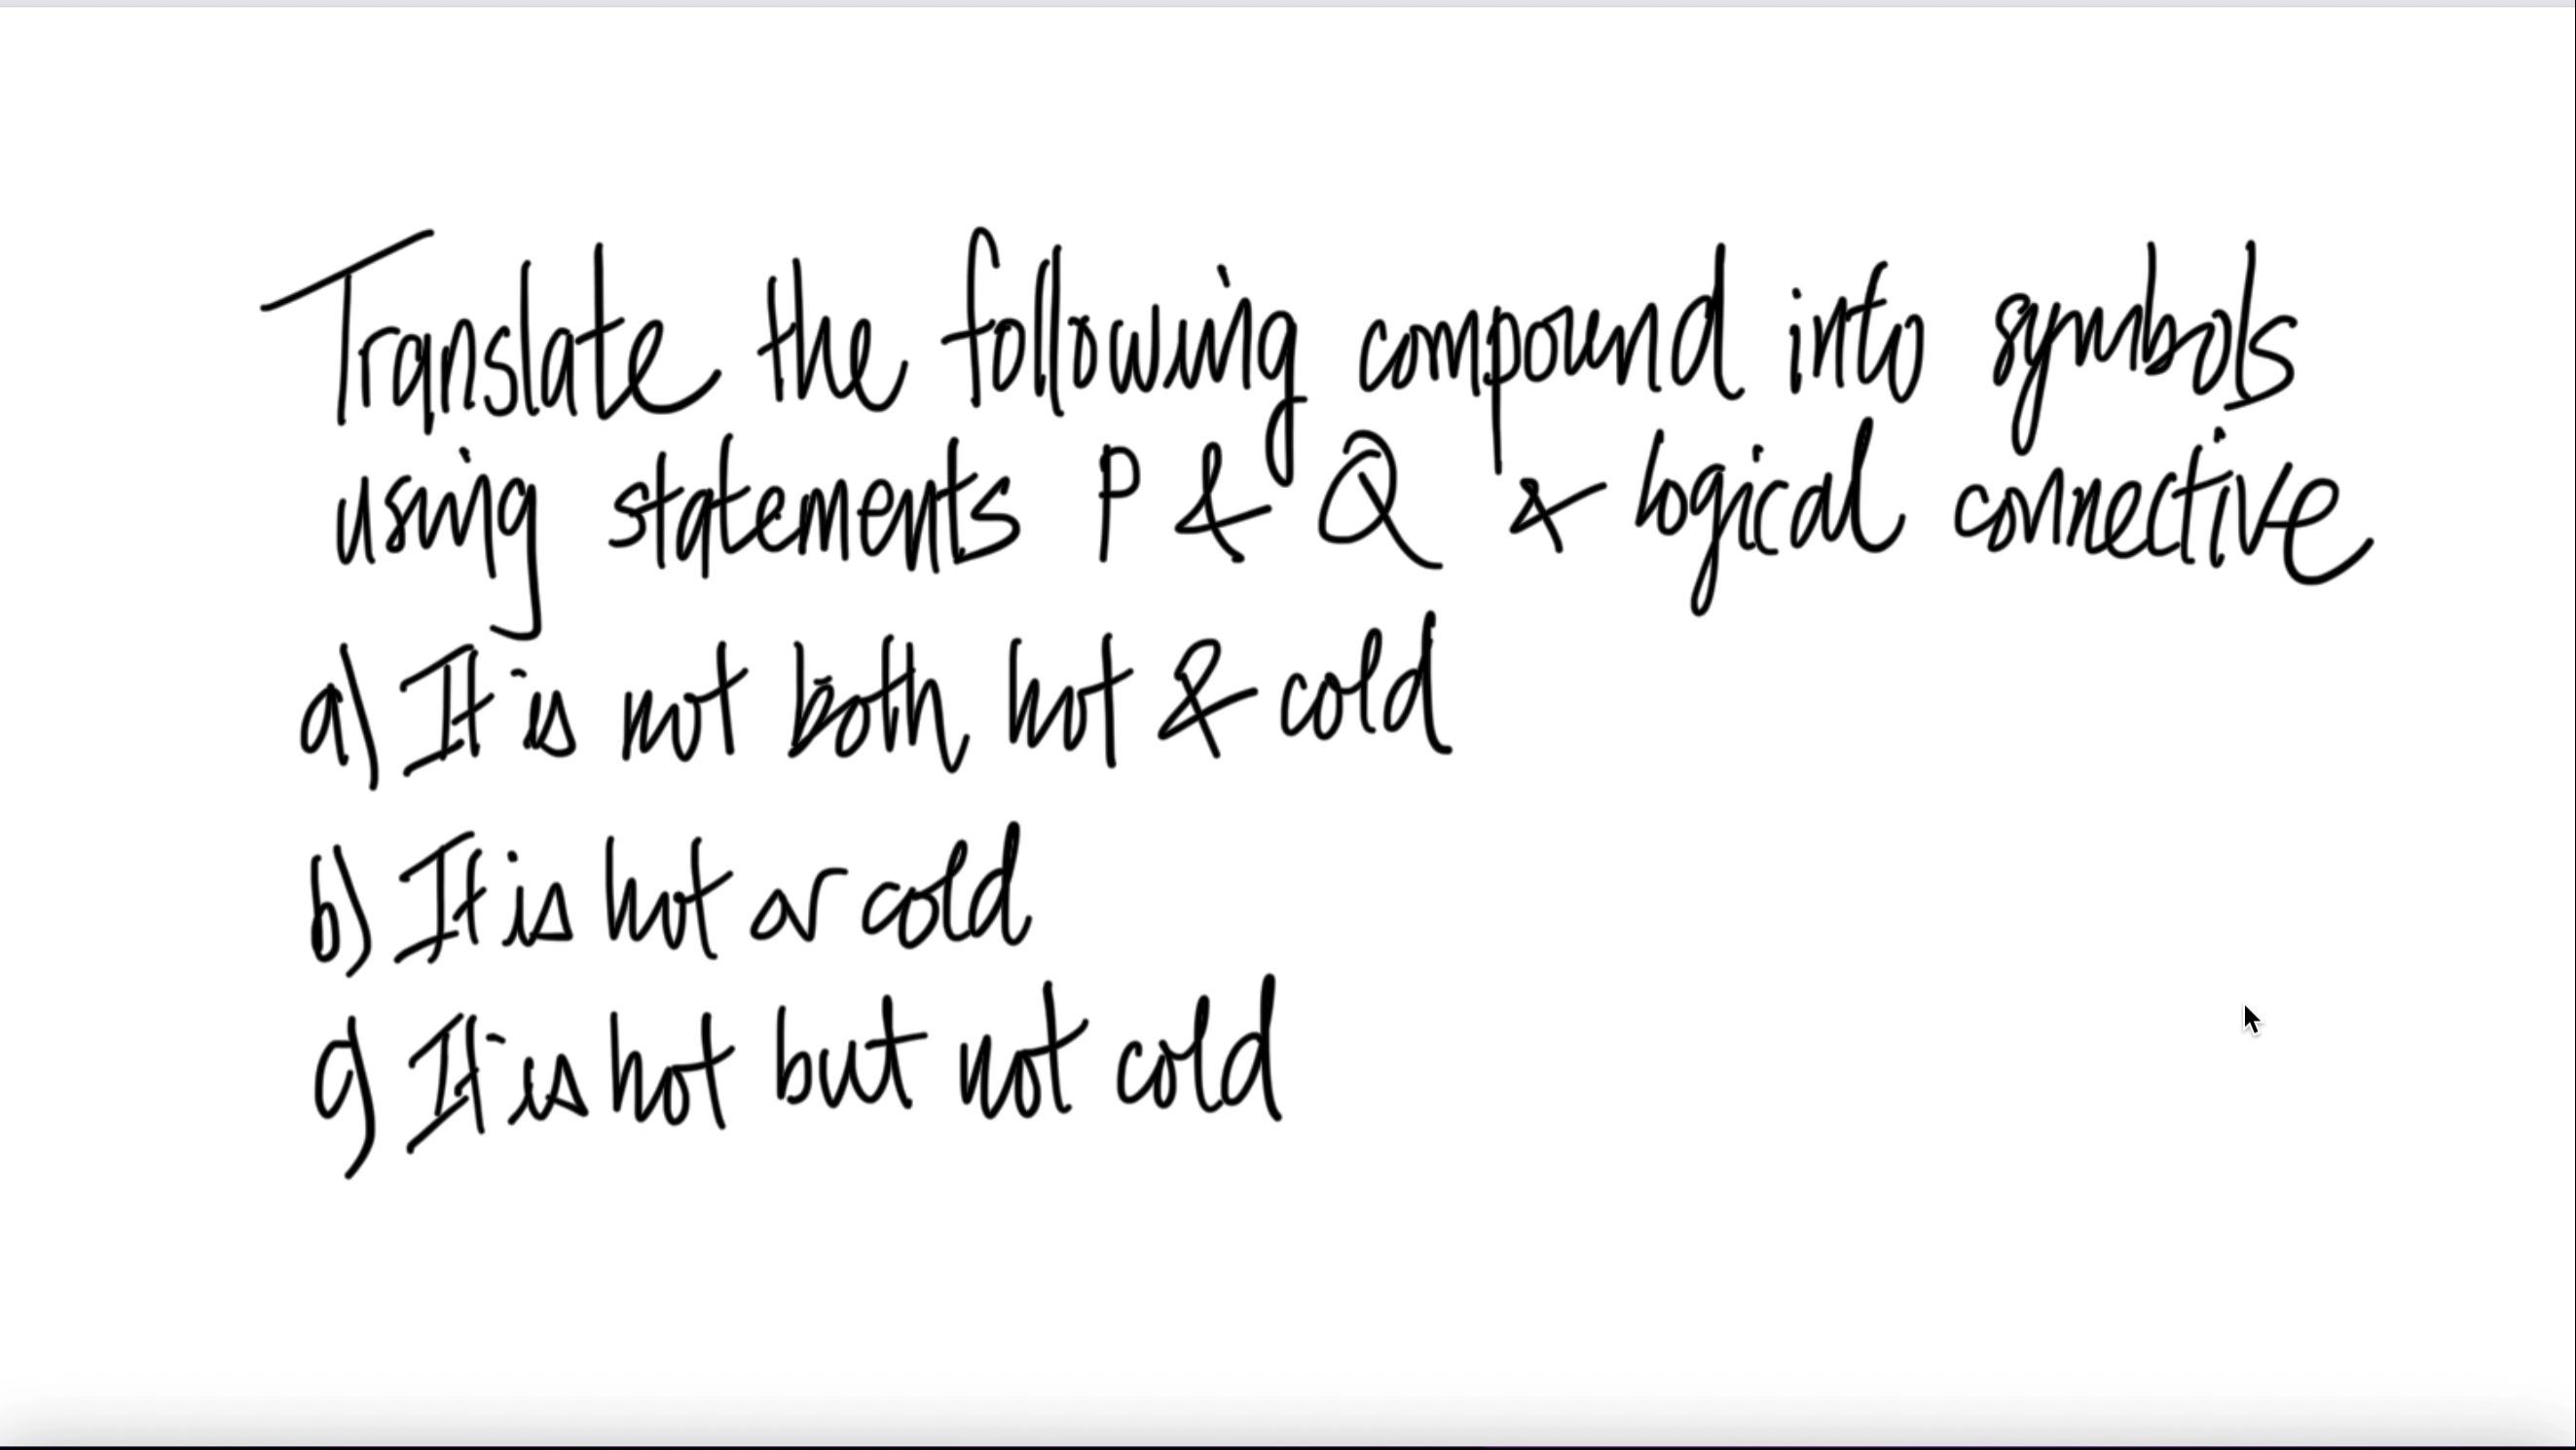 Translate the following compound into symbols
using statements P & Q & logical connective
a) It is not both hot & cold
b) It is hot or cold
c) It is hot but not cold